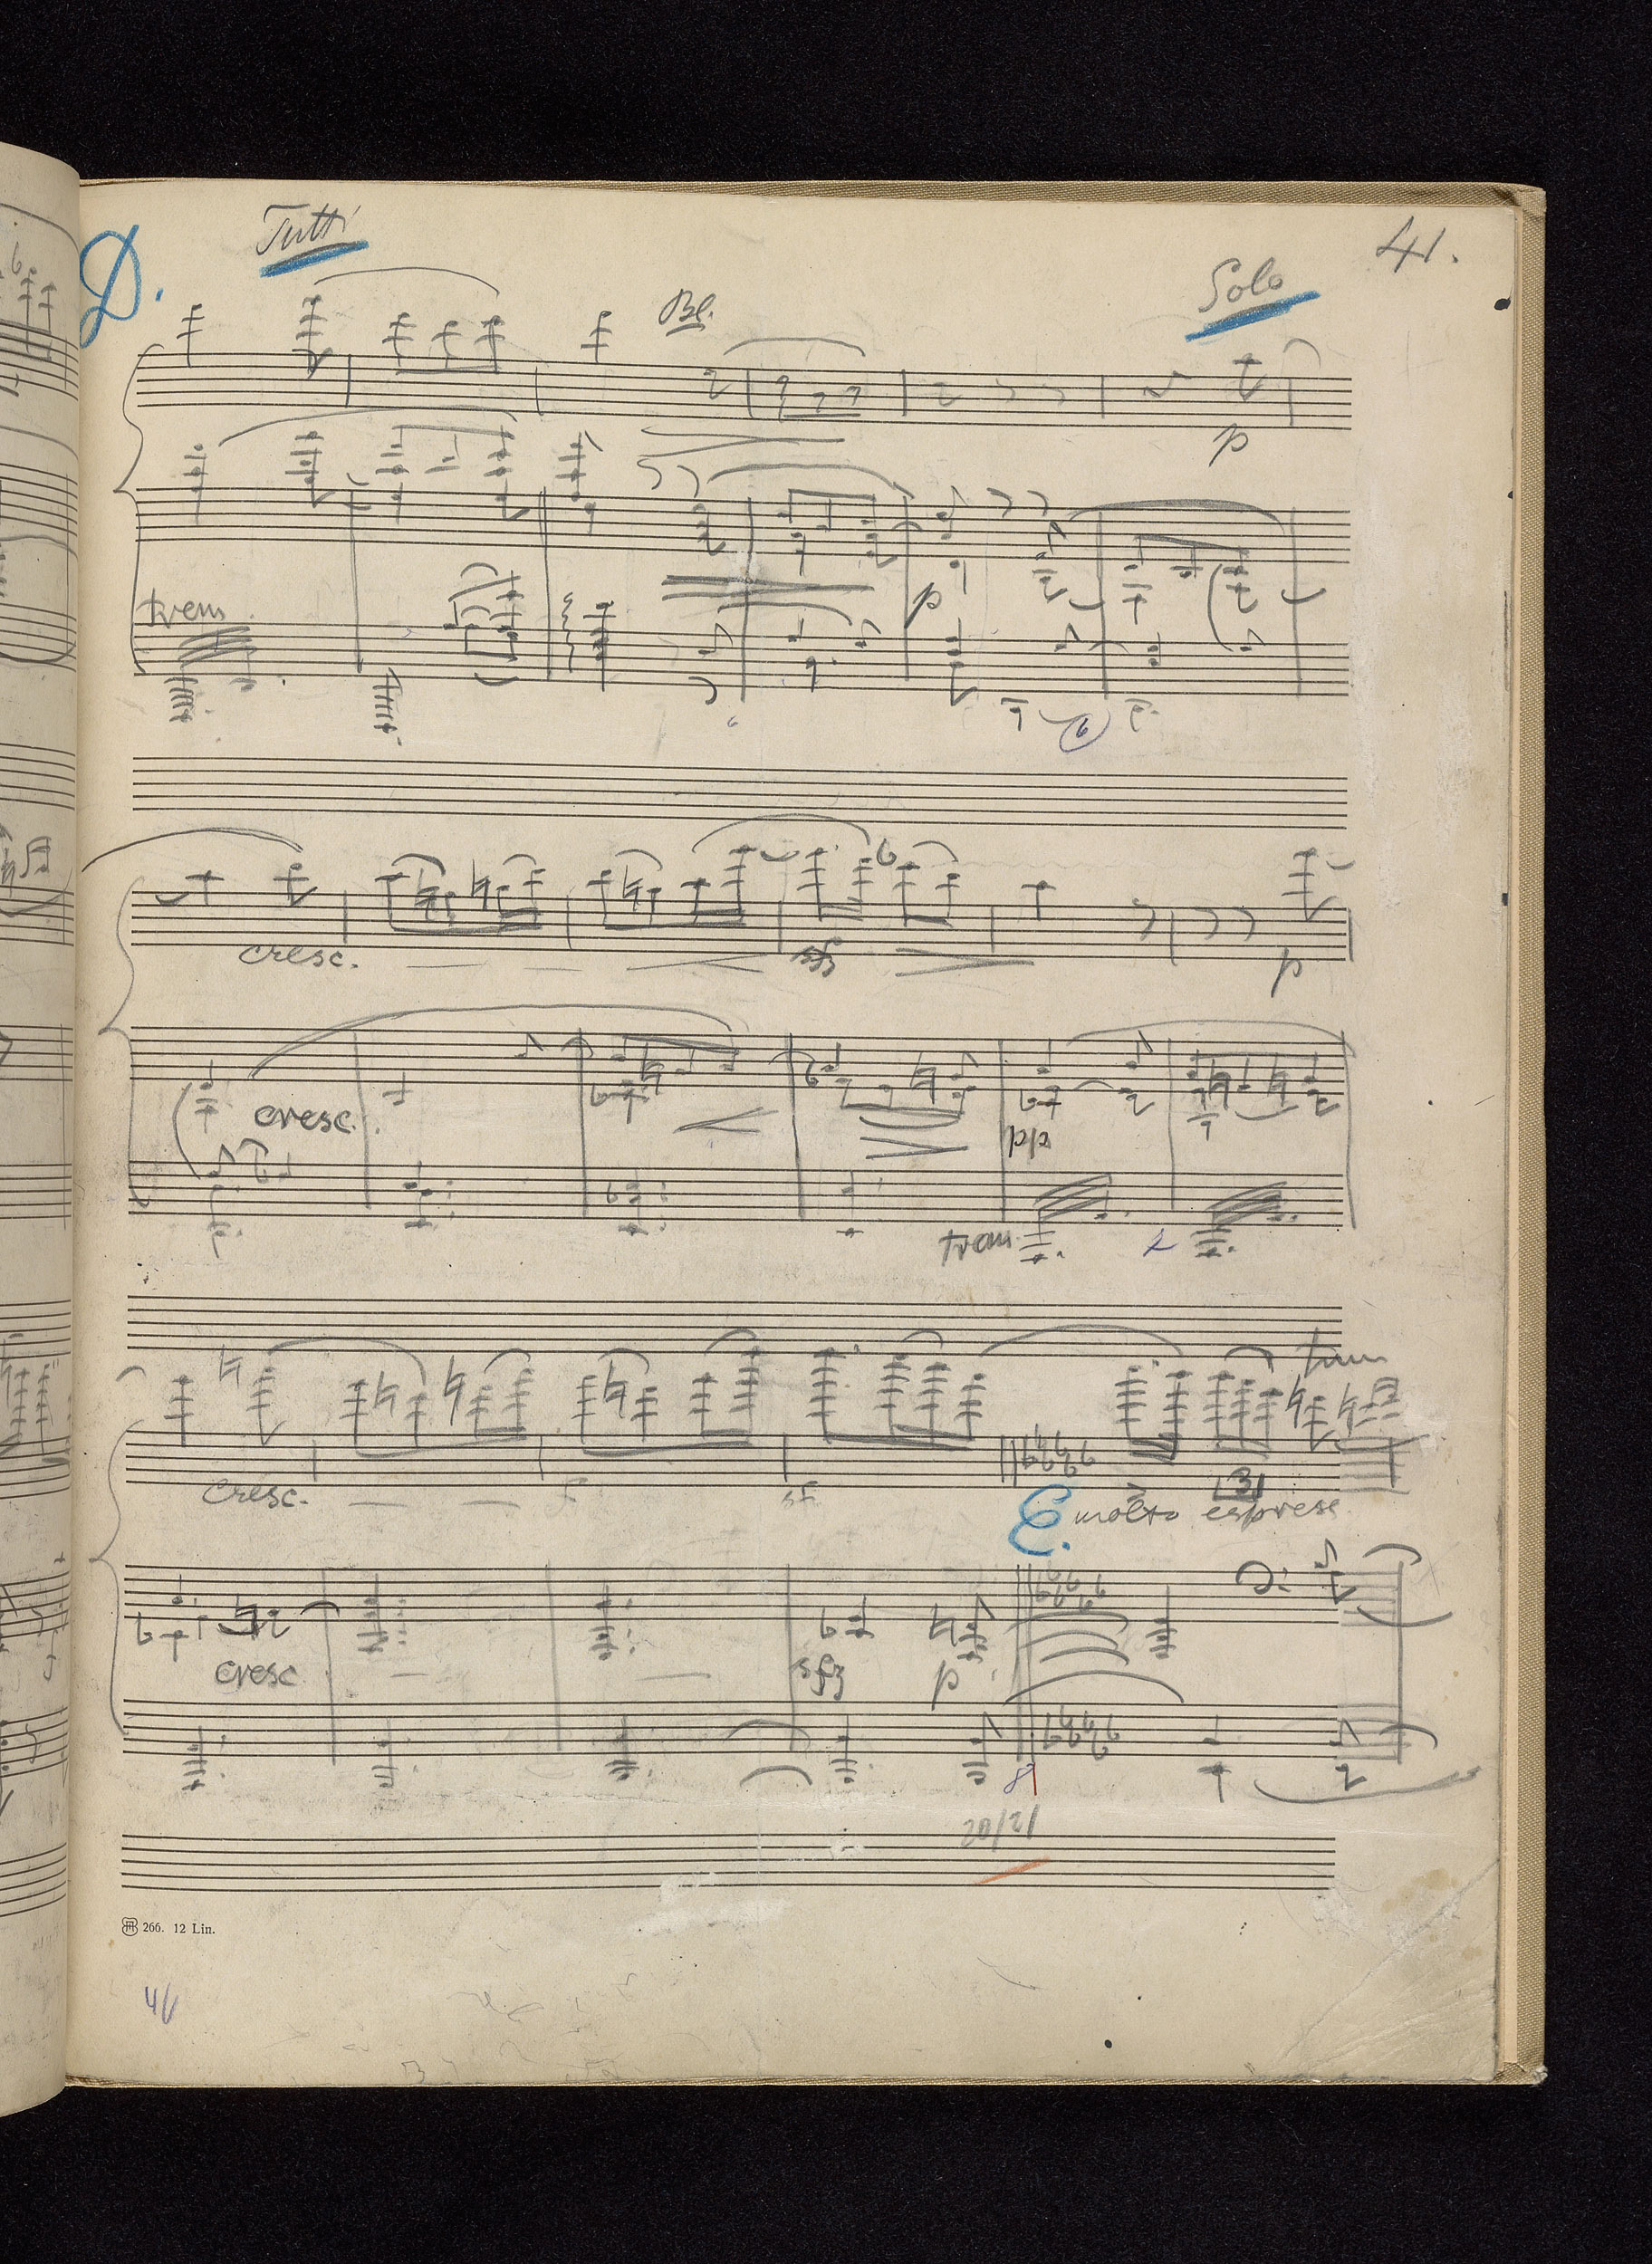 D. Tutti 41.
Bl. Solo
p
trem p
6
cresc. sf p
cresc. pp
trem
cresc. f sf
E. molto espress 3
cresc sfz p
8
20/21
266. 12 Lin.